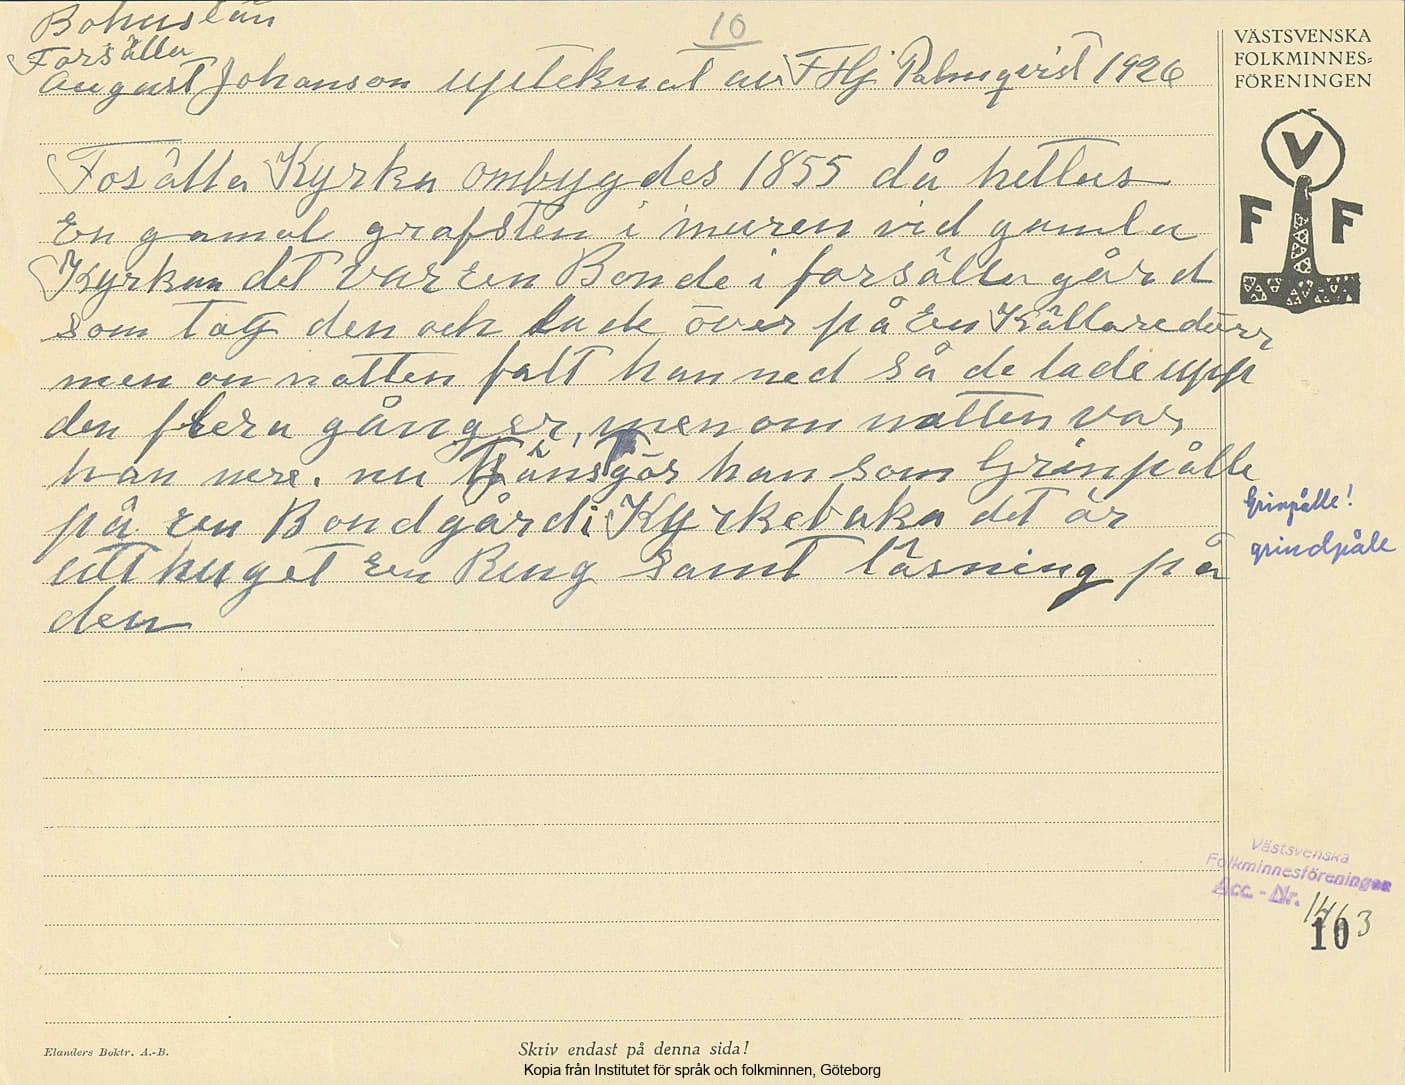 Bohuslän
10
Forsälla
August Johanson upteknat av F Hj Palmqvist 1926
Fosälla Kyrka ombygdes 1855 då hettus
En gamal grafsten i muren vid gamla
Kyrkan det var een Bonde i forsälla gård
som tog den och lade över på een Källaredörr
men om natten falt han ned så de lade upp
den flera gånger, men om natten var
han nere. nu tjänstgör han som Grinpålle
på een Bondgård i Kyrkebaka det är
utthuget een Ring samt läsning på
den
Grinpålle!
grindpåle
VÄSTSVENSKA
FOLKMINNES=
FÖRENINGEN
V
F F
Västsvenska
Folkminnesföreningen
Acc. - Nr. 1463
10
Elanders Boktr. A.-B.
Skriv endast på denna sida!
Kopia från Institutet för språk och folkminnen, Göteborg